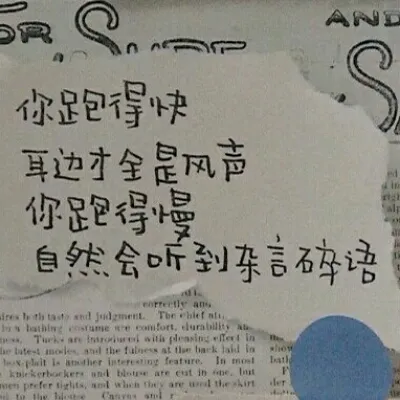 OR SURE
AND
S
你跑得快
耳边才全是风声
你跑得慢
自然会听到杂言碎语
correctly and
ires both taste and judgment. The chief at
bathing costume are comfort, durability an
ness. Tucks are introduced with pleasing effect in
the latest modes, and the fulness at the back laid in
box-plait is another interesting feature. In most
knickerbockers and blouse are cut in one, but
men prefer tights, and when they are used the skirt
to the blouse. Canvas and